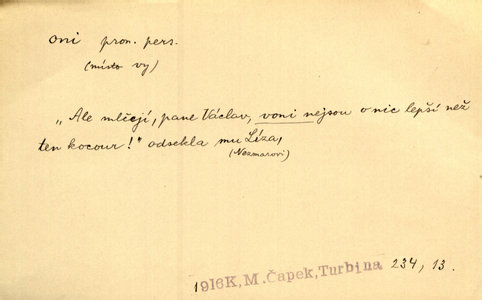 oni pron. pers.
(místo vy)
„Ale mlčejí, pane Václav, voni nejsou o nic lepší než
ten kocour!" odsekla mu Líza,
(Nezmarovi)
1916K,M.Čapek,Turbina 234, 13.